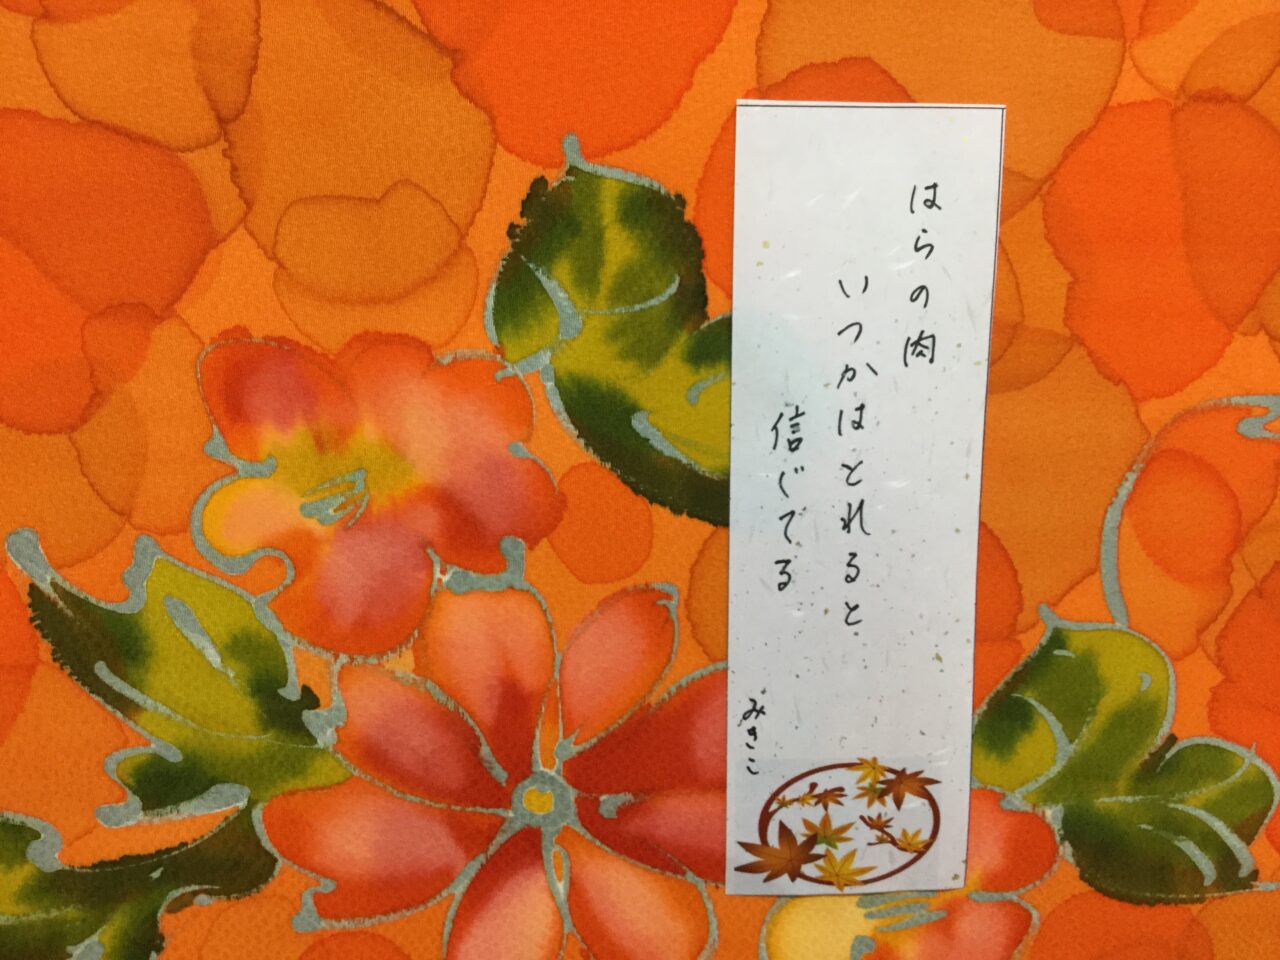 はらの肉
いつかはとれると
信じてる
みきこ